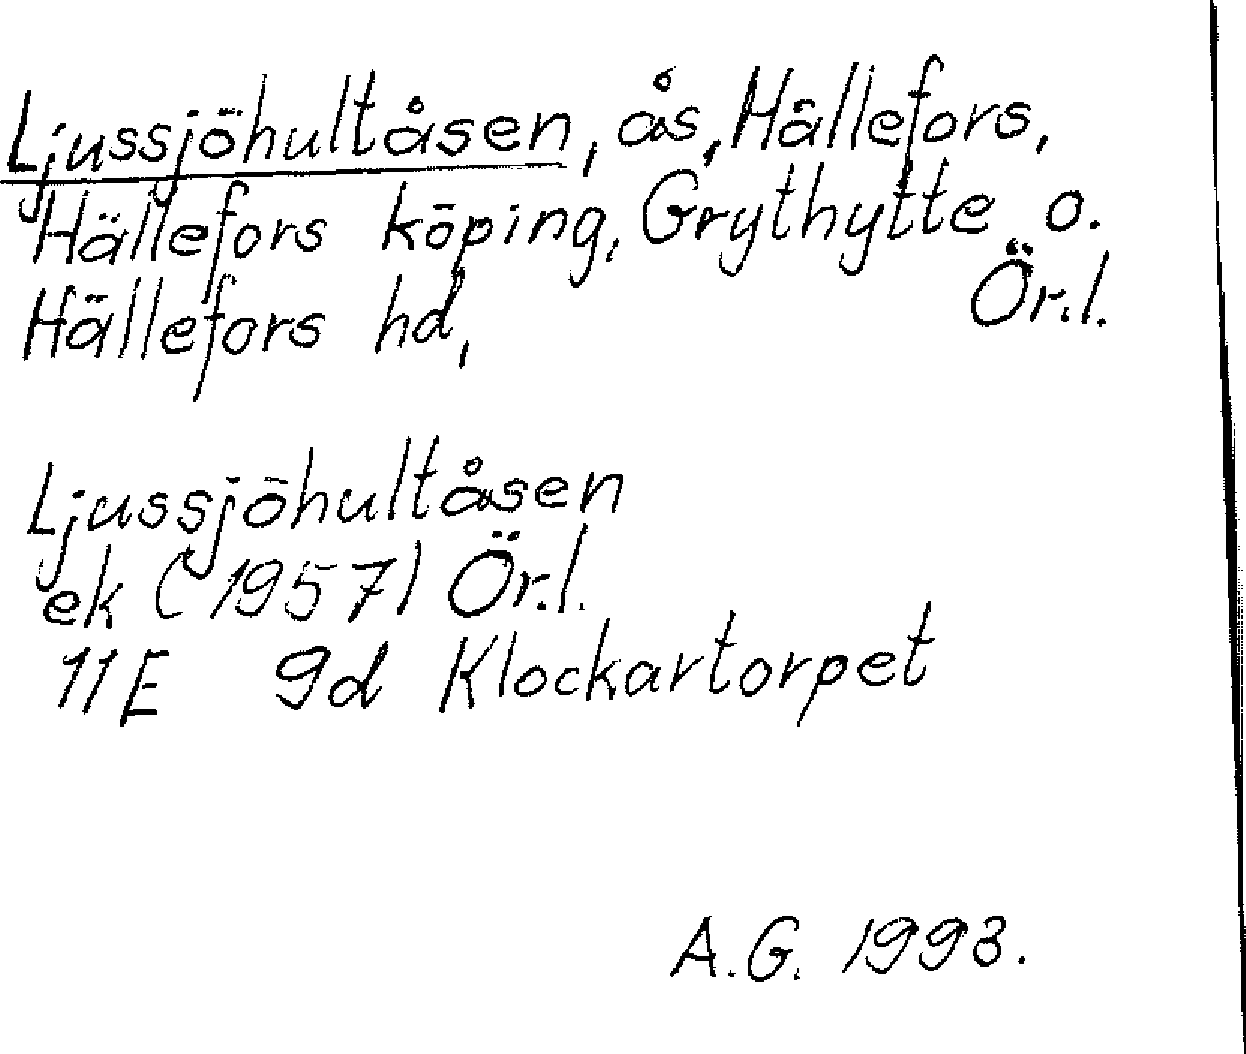 Ljussjöhultåsen, ås, Hällefors,
Hällefors köping, Grythytte o.
Hällefors hd, Ör.l.
Ljussjöhultåsen
ek (1957) Ör.l.
11E 9d Klockartorpet
A.G. 1993.